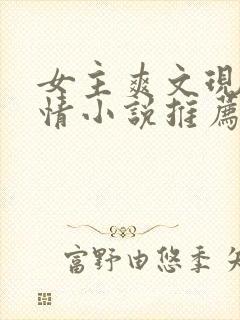 女主爽文現
情小說推薦
富野由悠季